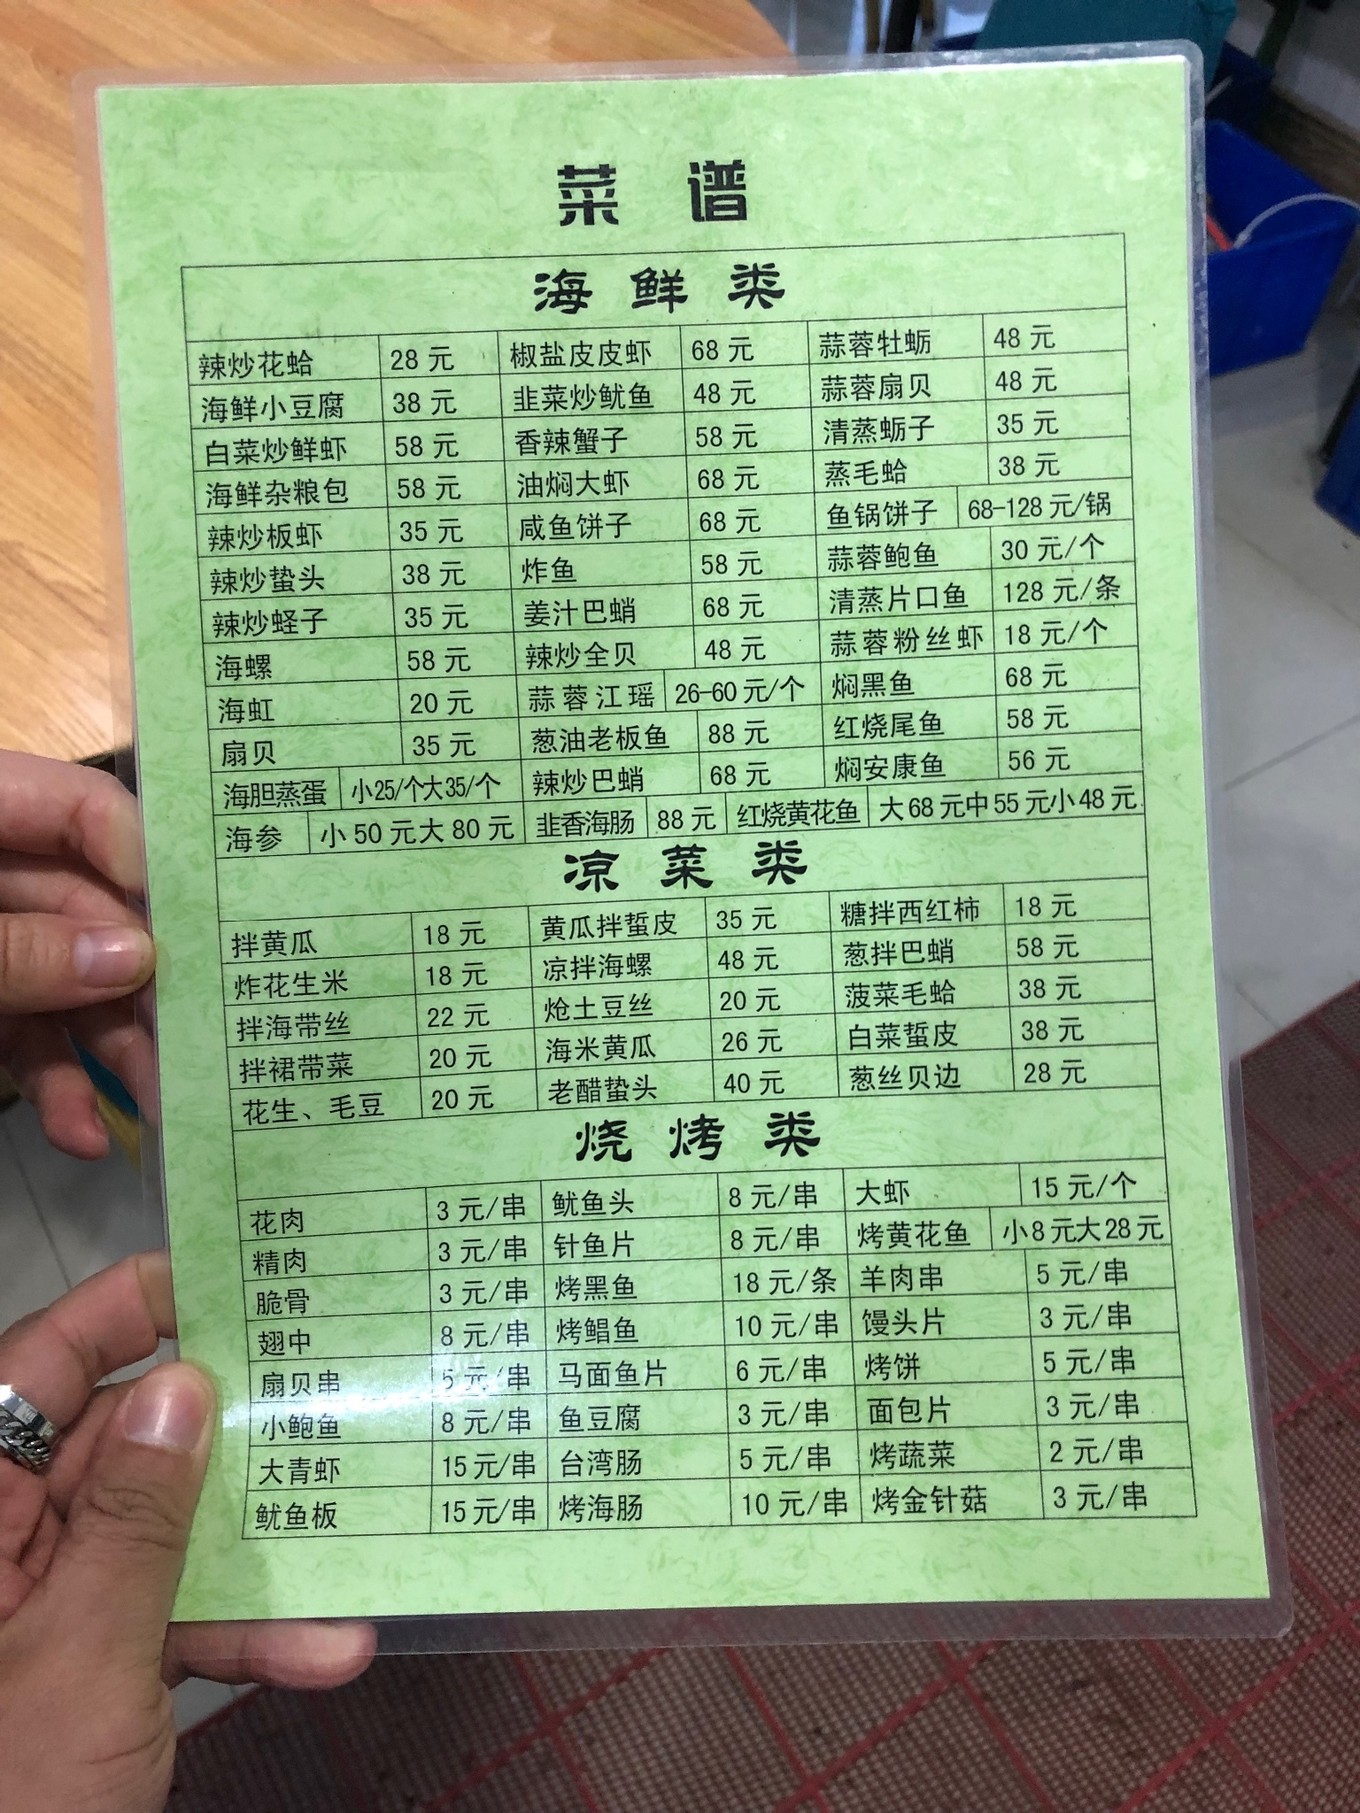 菜 谱
海 鲜 类
辣炒花蛤 28 元 椒盐皮皮虾 68 元 蒜蓉牡蛎 48 元
海鲜小豆腐 38 元 韭菜炒鱿鱼 48 元 蒜蓉扇贝 48 元
白菜炒鲜虾 58 元 香辣蟹子 58 元 清蒸蛎子 35 元
海鲜杂粮包 58 元 油焖大虾 68 元 蒸毛蛤 38 元
辣炒板虾 35 元 咸鱼饼子 68 元 鱼锅饼子 68-128 元/锅
辣炒蛰头 38 元 炸鱼 58 元 蒜蓉鲍鱼 30 元/个
辣炒蛏子 35 元 姜汁巴蛸 68 元 清蒸片口鱼 128 元/条
海螺 58 元 辣炒全贝 48 元 蒜蓉粉丝虾 18 元/个
海虹 20 元 蒜蓉江瑶 26-60 元/个 焖黑鱼 68 元
扇贝 35 元 葱油老板鱼 88 元 红烧尾鱼 58 元
海胆蒸蛋 小25/个大35/个 辣炒巴蛸 68 元 焖安康鱼 56 元
海参 小 50 元大 80 元 韭香海肠 88 元 红烧黄花鱼 大 68 元中 55 元小 48 元
凉 菜 类
拌黄瓜 18 元 黄瓜拌蜇皮 35 元 糖拌西红柿 18 元
炸花生米 18 元 凉拌海螺 48 元 葱拌巴蛸 58 元
拌海带丝 22 元 炝土豆丝 20 元 菠菜毛蛤 38 元
拌裙带菜 20 元 海米黄瓜 26 元 白菜蜇皮 38 元
花生、毛豆 20 元 老醋蛰头 40 元 葱丝贝边 28 元
烧 烤 类
花肉 3 元/串 鱿鱼头 8 元/串 大虾 15 元/个
精肉 3 元/串 针鱼片 8 元/串 烤黄花鱼 小8 元大28 元
脆骨 3 元/串 烤黑鱼 18 元/条 羊肉串 5 元/串
翅中 8 元/串 烤鲳鱼 10 元/串 馒头片 3 元/串
扇贝串 5 元/串 马面鱼片 6 元/串 烤饼 5 元/串
小鲍鱼 8 元/串 鱼豆腐 3 元/串 面包片 3 元/串
大青虾 15 元/串 台湾肠 5 元/串 烤蔬菜 2 元/串
鱿鱼板 15 元/串 烤海肠 10 元/串 烤金针菇 3 元/串